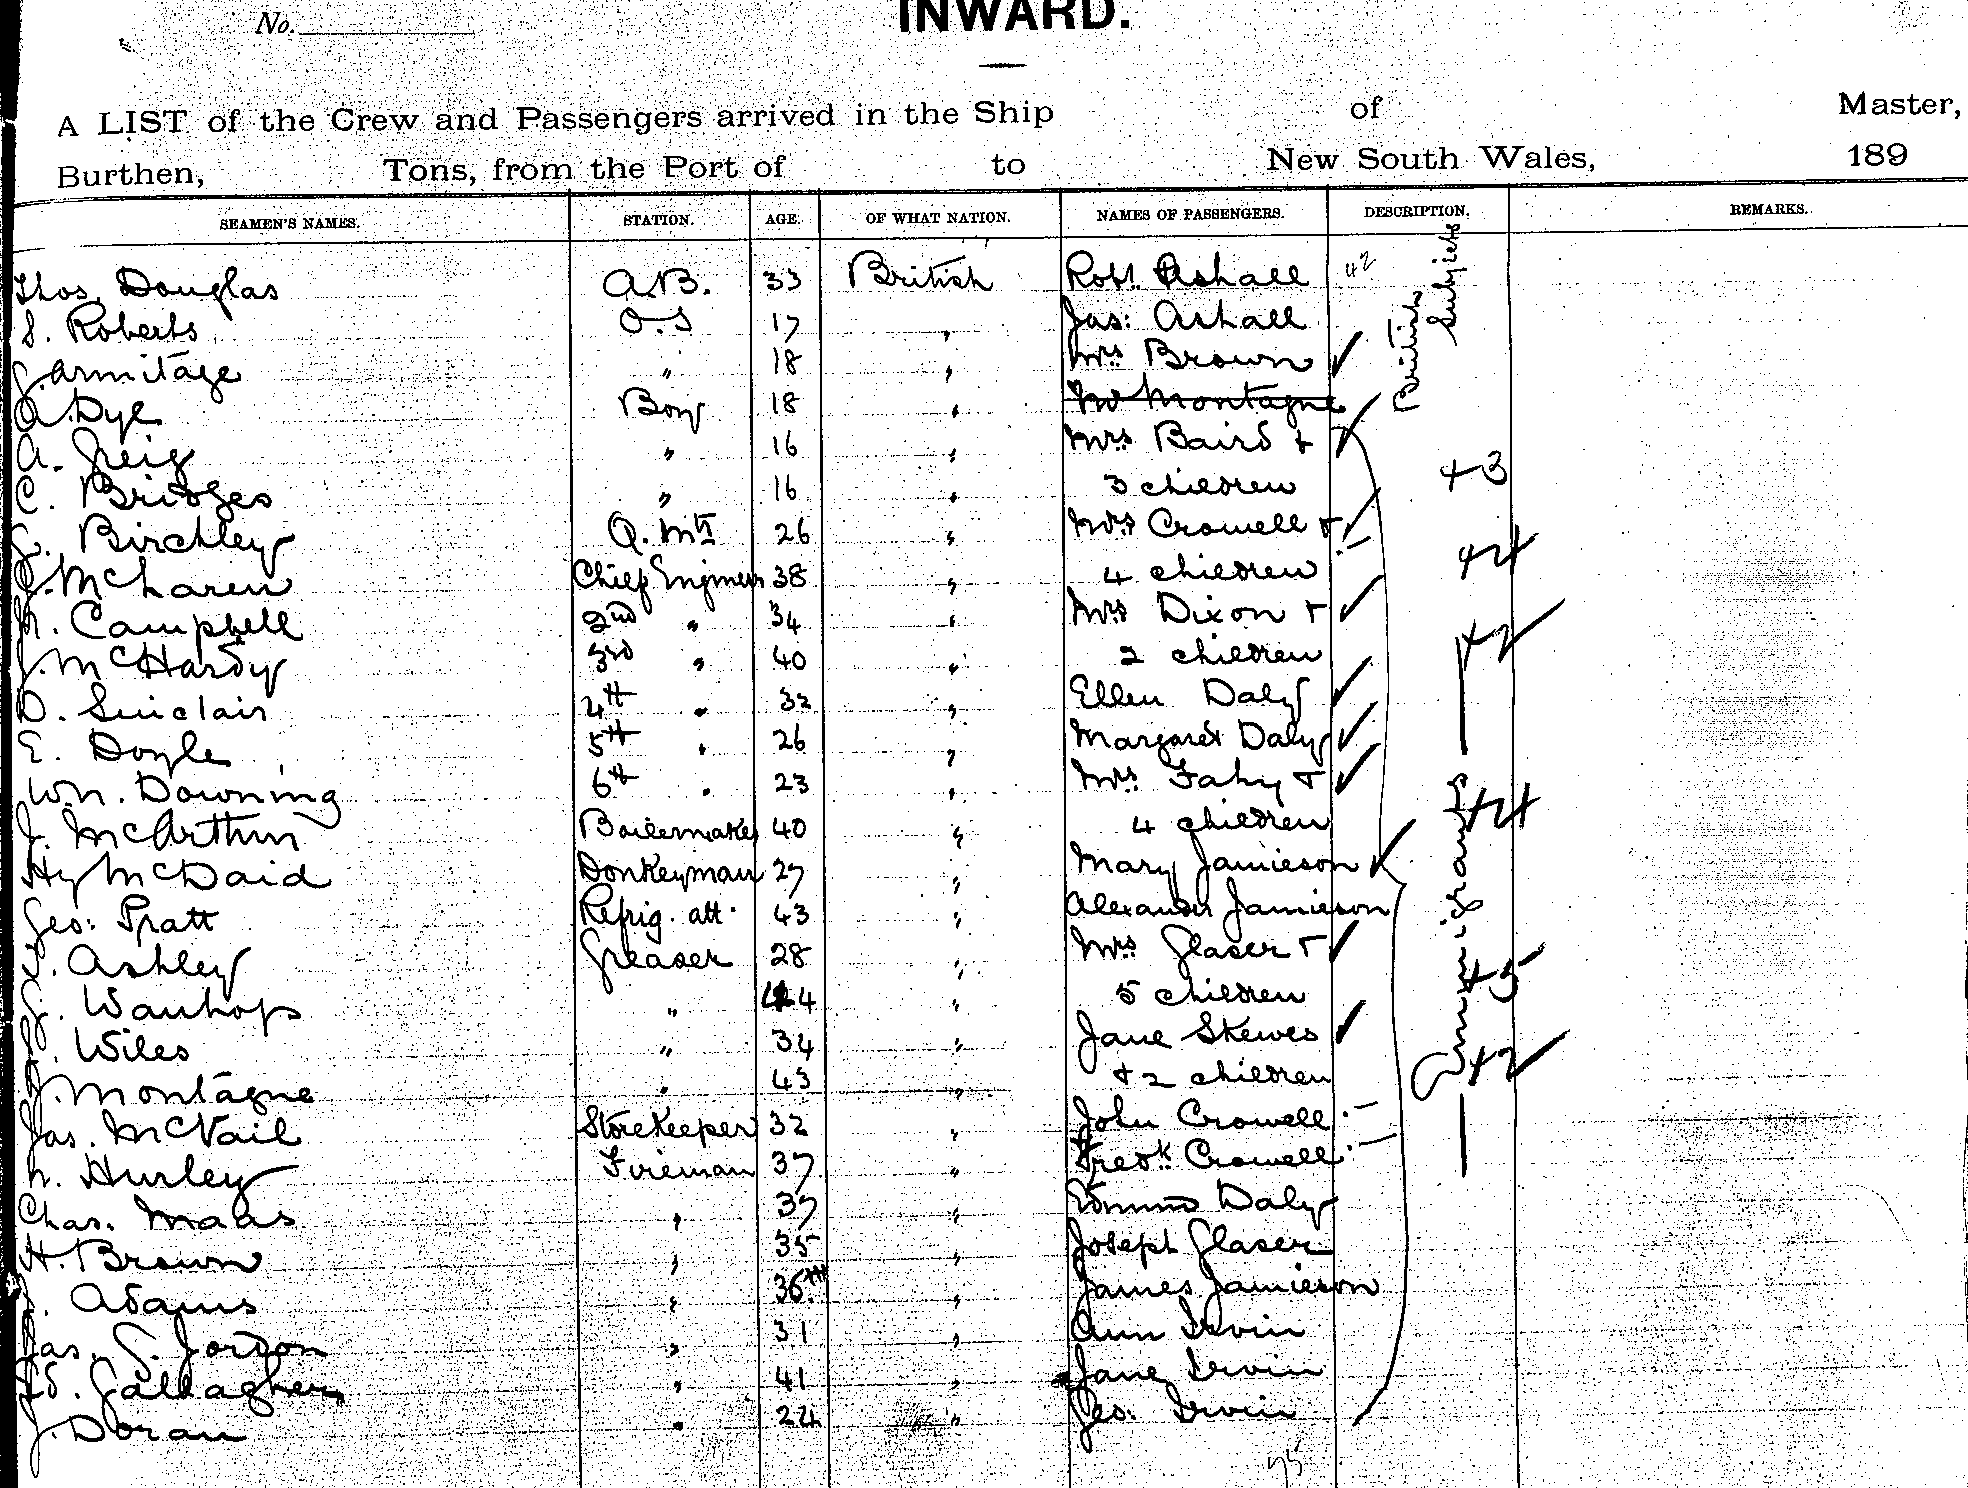 No.
INWARD.
A LIST of the Crew and Passengers arrived in the Ship of Master,
Burthen, Tons, from the Port of to New South Wales, 189
SEAMEN'S NAMES. STATION. AGE. OF WHAT NATION. NAMES OF PASSENGERS. DESCRIPTION. REMARKS.
Thos. Douglas A.B. 33 British Robt. Ashall 42 British Subjects
S. Roberts O.S 17 " Jas: Ashall
J. Armitage " 18 " Mrs Brown
A. Dye Boy 18 " Mr Montague
A. Greig " 16 " Mrs Baird +
C. Bridges " 16 " 3 children +3
Birchley Q. Mtr 26 " Mrs Crowell +
McLaren Chief Engineer 38 " 4 children +4
Campbell 2nd " 34 " Mrs Dixon +
J. McHardy 3rd " 40 " 2 children +2
D. Sinclair 4th " 32 " Ellen Daly
E. Doyle 5th " 26 " Margaret Daly
Wm. Downing 6th " 23 " Mrs Fahy +
J. McArthur Boilermaker 40 " 4 children +4
Hy McDaid Donkeyman 27 " Mary Jamieson Immigrants
Geo: Pratt Refrig. att. 43 " Alexander Jamieson
Ashley Greaser 28 " Mrs Glaser +
G. Wauhop " 44 " 5 children +5
Wiles " 34 " Jane Skewes
J. Montague " 43 " + 2 children +2
Jas. McVail Storekeeper 32 " John Crowell
Hurley Fireman 37 " Fredk. Crowell
Chas. Maas " 37 " Daly
H. Brown " 35 " Joseph Glaser
Adams " 36 " James Jamieson
Jas. G. Jordon " 31 " Ann Irvin
Ed. Gallagher " 41 " Jane Irvin
J. Doran " 24 " Geo: Irvin